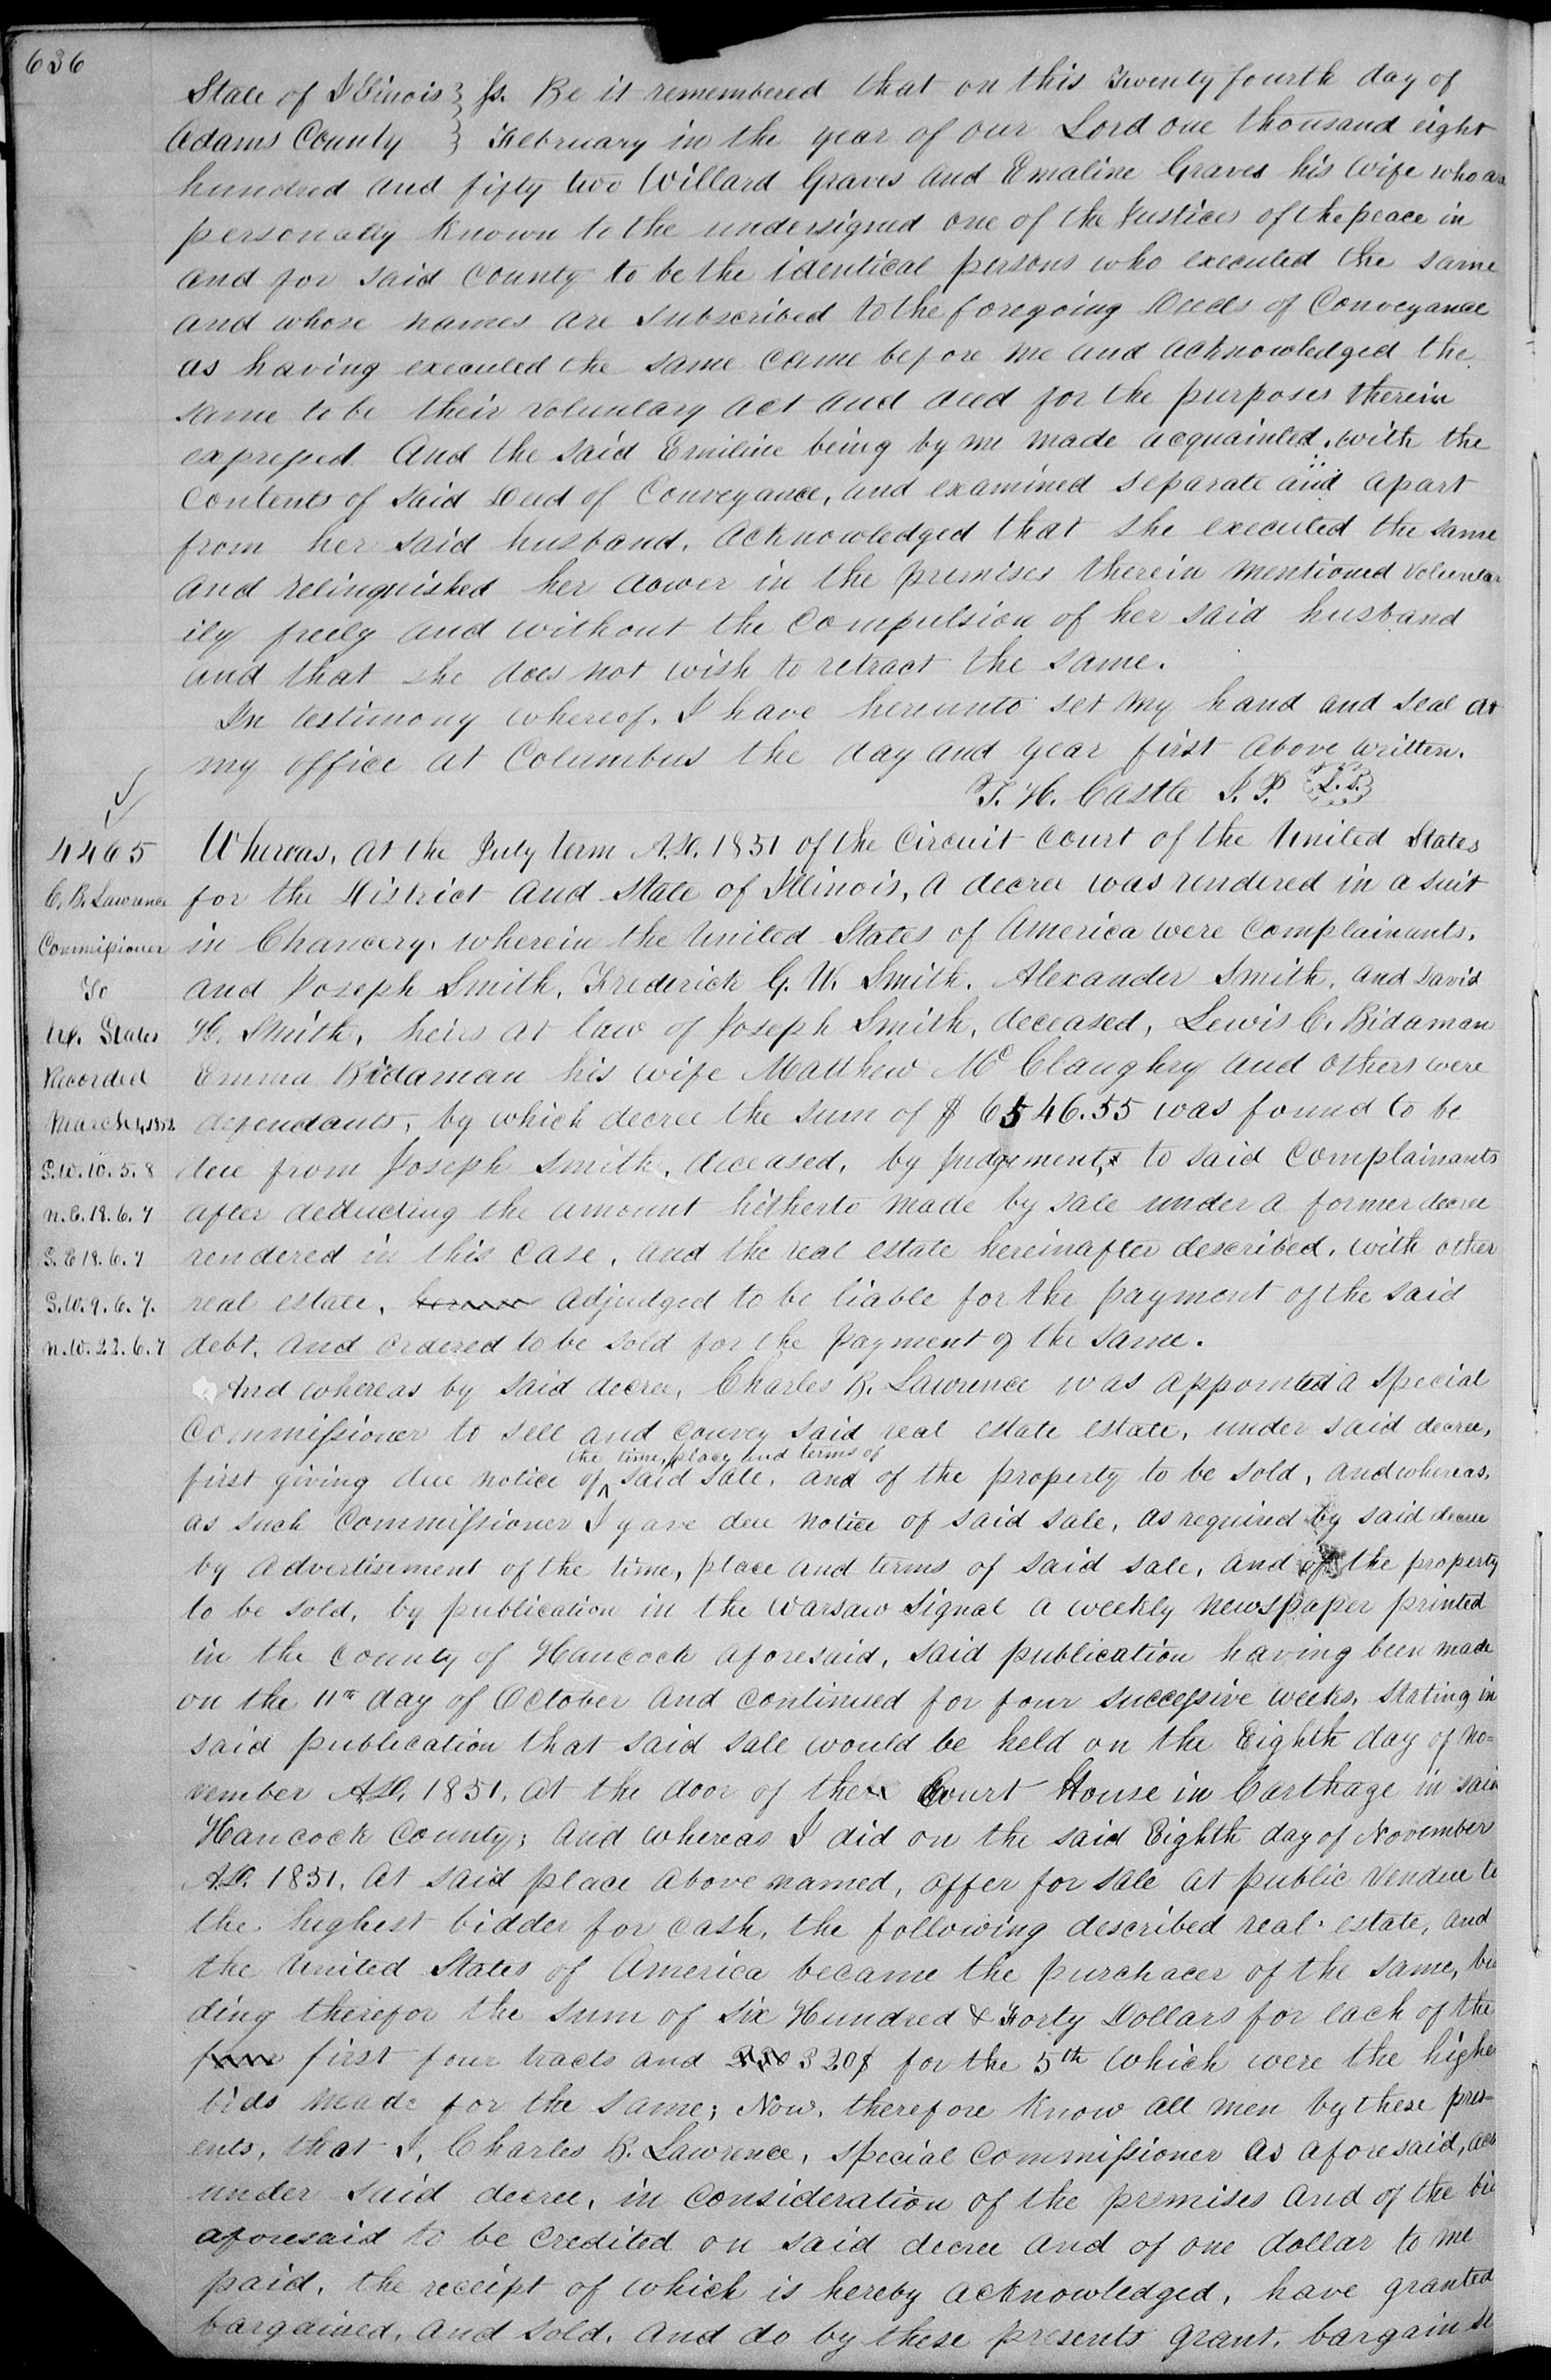 636
State of Illinois } ss. Be it remembered that on this Twenty fourth day of
Adams County } February in the year of our Lord one thousand eight
hundred and fifty two Willard Graves and Emaline Graves his wife who are
personally known to the undersigned one of the Justices of the peace in
and for said County to be the identical persons who executed the same
and whose names are subscribed to the foregoing Deeds of Conveyance
as having executed the same came before me and acknowledged the
same to be their voluntary act and deed for the purposes therein
expressed. And the said Emiline being by me made acquainted, with the
contents of said Deed of Conveyance, and examined separate and apart
from her said husband, acknowledged that she executed the same
and relinquished her dower in the premises therein mentioned voluntar
ily freely and without the compulsion of her said husband
and that she does not wish to retract the same.
In testimony whereof, I have hereunto set my hand and seal at
my office at Columbus the day and year first above written.
T. H. Castle J. P. L.S.
4465
C. B. Lawrence
Commissioner
To
Un. States
Recorded
March 1, 1852
S.W. 10. 5. 8
N.E. 18. 6. 7
S.E 18. 6. 7
S.W. 9. 6. 7.
N.W. 22. 6. 7
Whereas, at the July term A.D. 1851 of the Circuit Court of the United States
for the District and State of Illinois, a decree was rendered in a suit
in Chancery, wherein the United States of America were complainants,
and Joseph Smith, Frederick G. W. Smith, Alexander Smith, and David
H. Smith, heirs at law of Joseph Smith, deceased, Lewis C. Bidaman
Emma Bidaman his wife Matthew McClaughry and others were
defendants, by which decree the sum of $ 6546.55 was found to be
due from Joseph Smith, deceased, by judgement, to said Complainants
after deducting the amount hitherto made by sale under a former decree
rendered in this case, and the real estate hereinafter described, with other
real estate, adjudged to be liable for the payment of the said
debt, and ordered to be sold for the payment of the same.
And whereas by said decree, Charles B. Lawrence was appointed a special
Commissioner to sell and convey said real estate estate, under said decree,
first giving due notice of the time, place and terms of said sale, and of the property to be sold, and whereas,
as such Commissioner I gave due notice of said sale, as required by said decree
by advertisement of the time, place and terms of said sale, and of the property
to be sold, by publication in the Warsaw Signal a weekly newspaper printed
in the County of Hancock aforesaid, said publication having been made
on the 11th day of October and continued for four successive weeks, stating in
said publication that said sale would be held on the Eighth day of No=
vember A.D. 1851, at the door of the Court House in Carthage in said
Hancock County; and whereas I did on the said Eighth day of November
A.D. 1851, at said place above named, offer for sale at public vendue to
the highest bidder for cash, the following described real estate, and
the United States of America became the purchacer of the same, bid
ding therefor the sum of Six Hundred & Forty Dollars for each of the
four first four tracts and 320$ for the 5th which were the highe
bids made for the same; Now, therefore know all men by these pres=
ents, that I, Charles B. Lawrence, Special Commissioner as aforesaid,
under said decree, in consideration of the premises and of the bid
aforesaid to be credited on said decree and of one dollar to me
paid, the receipt of which is hereby acknowledged, have granted
bargained, and sold, and do by these presents grant, bargain